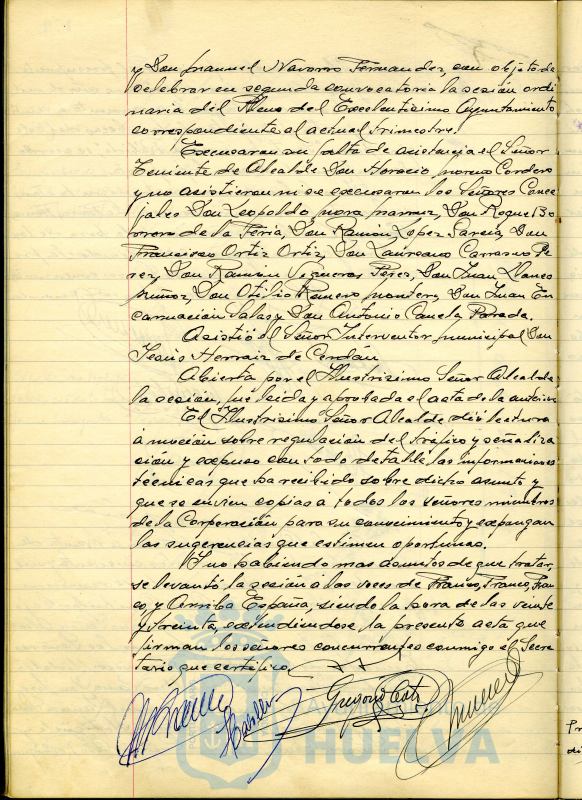 y Don Manuel Navarro Fernandez, con objeto de
celebrar en segunda convocatoria la sesión ordi
naria del Pleno del Excelentísimo Ayuntamiento
correspondiente al actual trimestre.
Excusaron su falta de asistencia el Señor
Teniente de Alcalde Don Horacio Moreno Cordero
y no asistieron ni se excusaron los Señores Conce
jales Don Leopoldo Mora Don Roque Bo
rrero de la Feria, Don Ramón Lopez García, Don
Francisco Ortiz Ortiz, Don Laureano Carrasco Pe
rez, Don Ramón Vigueras Perez, Don Juan Llanes
Muñoz, Don Otilio Romero Montero, Don Juan En
carnación Salas y Don Antonio Canela Parada.
Asistió el Señor Interventor municipal Don
Jesús Herraiz de Cerdán
Abierta por el Ilustrisimo Señor Alcalde
la sesión, fué leida y aprobada el acta de la anterior
El Ilustrisimo Señor Alcalde dió lectura
á moción sobre regulación del tráfico y señaliza
ción y expuso con todo detalle las informaciones
técnicas que ha recibido sobre dicho asunto y
que se envien copias á todos los señores miembros
de la Corporación para su conocimiento y expongan
las sugerencias que estimen oportunas.
Y no habiendo mas asuntos de que tratar,
se levantó la sesión a las voces de Franco, Franco, Fran
co, y Arriba España, siendo la hora de las veinte
y treinta, extendiendose la presente acta que
firman los señores concurrentes conmigo el Secre
tario que certifico.
Gregorio
HUELVA